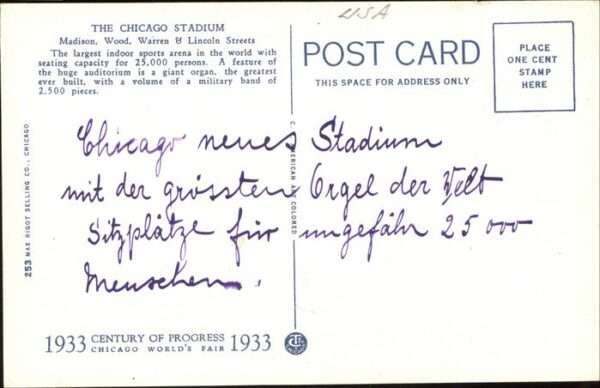 USA
THE CHICAGO STADIUM
Madison, Wood, Warren & Lincoln Streets
The largest indoor sports arena in the world with
seating capacity for 25,000 persons. A feature of
the huge auditorium is a giant organ, the greatest
ever built, with a volume of a military band of
2,500 pieces.
POST CARD
THIS SPACE FOR ADDRESS ONLY
PLACE
ONE CENT
STAMP
HERE
Chicago neues Stadium
mit der grössten Orgel der Welt
Sitzplätze für ungefähr 25000
Menschen.
253 MAX RIGOT SELLING CO., CHICAGO
C. AMERICAN COLORED
1933 CENTURY OF PROGRESS 1933
CHICAGO WORLD'S FAIR